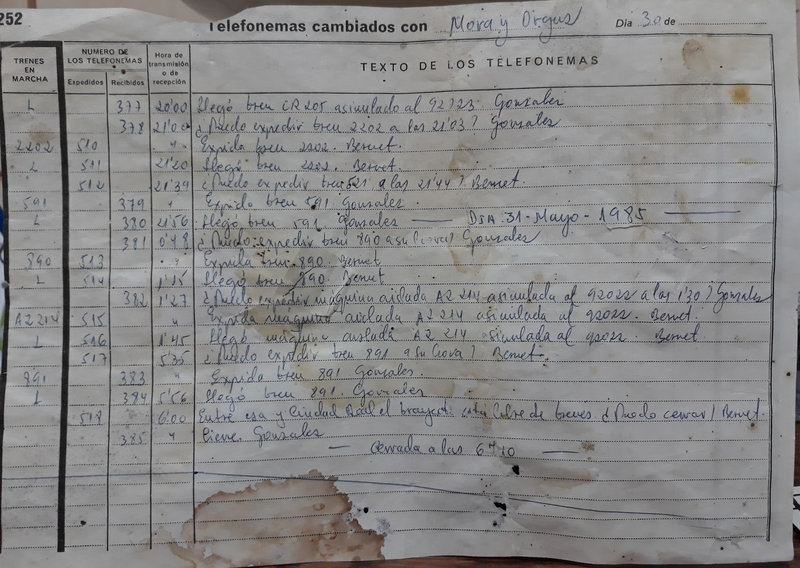 252
Telefonemas cambiados con Mora y Orgaz Dia 30 de
TRENES EN MARCHA
NUMERO DE LOS TELEFONEMAS
Expedidos Recibidos
Hora de transmisión o de recepción
TEXTO DE LOS TELEFONEMAS
L 377 20'00 Llegó tren CR 205 asimilado al 92723. Gonzales
378 21'00 ¿Puedo expedir tren 2202 a las 21'03? Gonzales
2202 510 " Expida tren 2202. Bernet.
L 511 21'20 Llegó tren 2202. Bernet.
512 21'39 ¿Puedo expedir tren 591 a las 21'44? Bernet.
591 379 " Expida tren 591. Gonzales.
L 380 21'56 Llegó tren 591. Gonzales — DIA 31-Mayo-1985 —
381 0'48 ¿Puedo expedir tren 890 a su hora? Gonzales
890 513 " Expida tren 890. Bernet
L 514 1'15 Llegó tren 890. Bernet
382 1'27 ¿Puedo expedir máquina aislada A2 214 asimilada al 92022 a las 1'30? Gonzales
A2 214 515 " Expida máquina aislada A2 214 asimilada al 92022. Bernet.
L 516 1'45 Llegó máquina aislada A2 214 asimilada al 92022. Bernet
517 5'35 ¿Puedo expedir tren 891 a su hora? Bernet.
891 383 " Expida tren 891 Gonzales.
L 384 5'56 Llegó tren 891. Gonzales
518 6'00 Entre esa y Ciudad Real el trayecto está libre de trenes ¿Puedo cerrar? Bernet.
385 " Cierre. Gonzales
— Cerrada a las 6